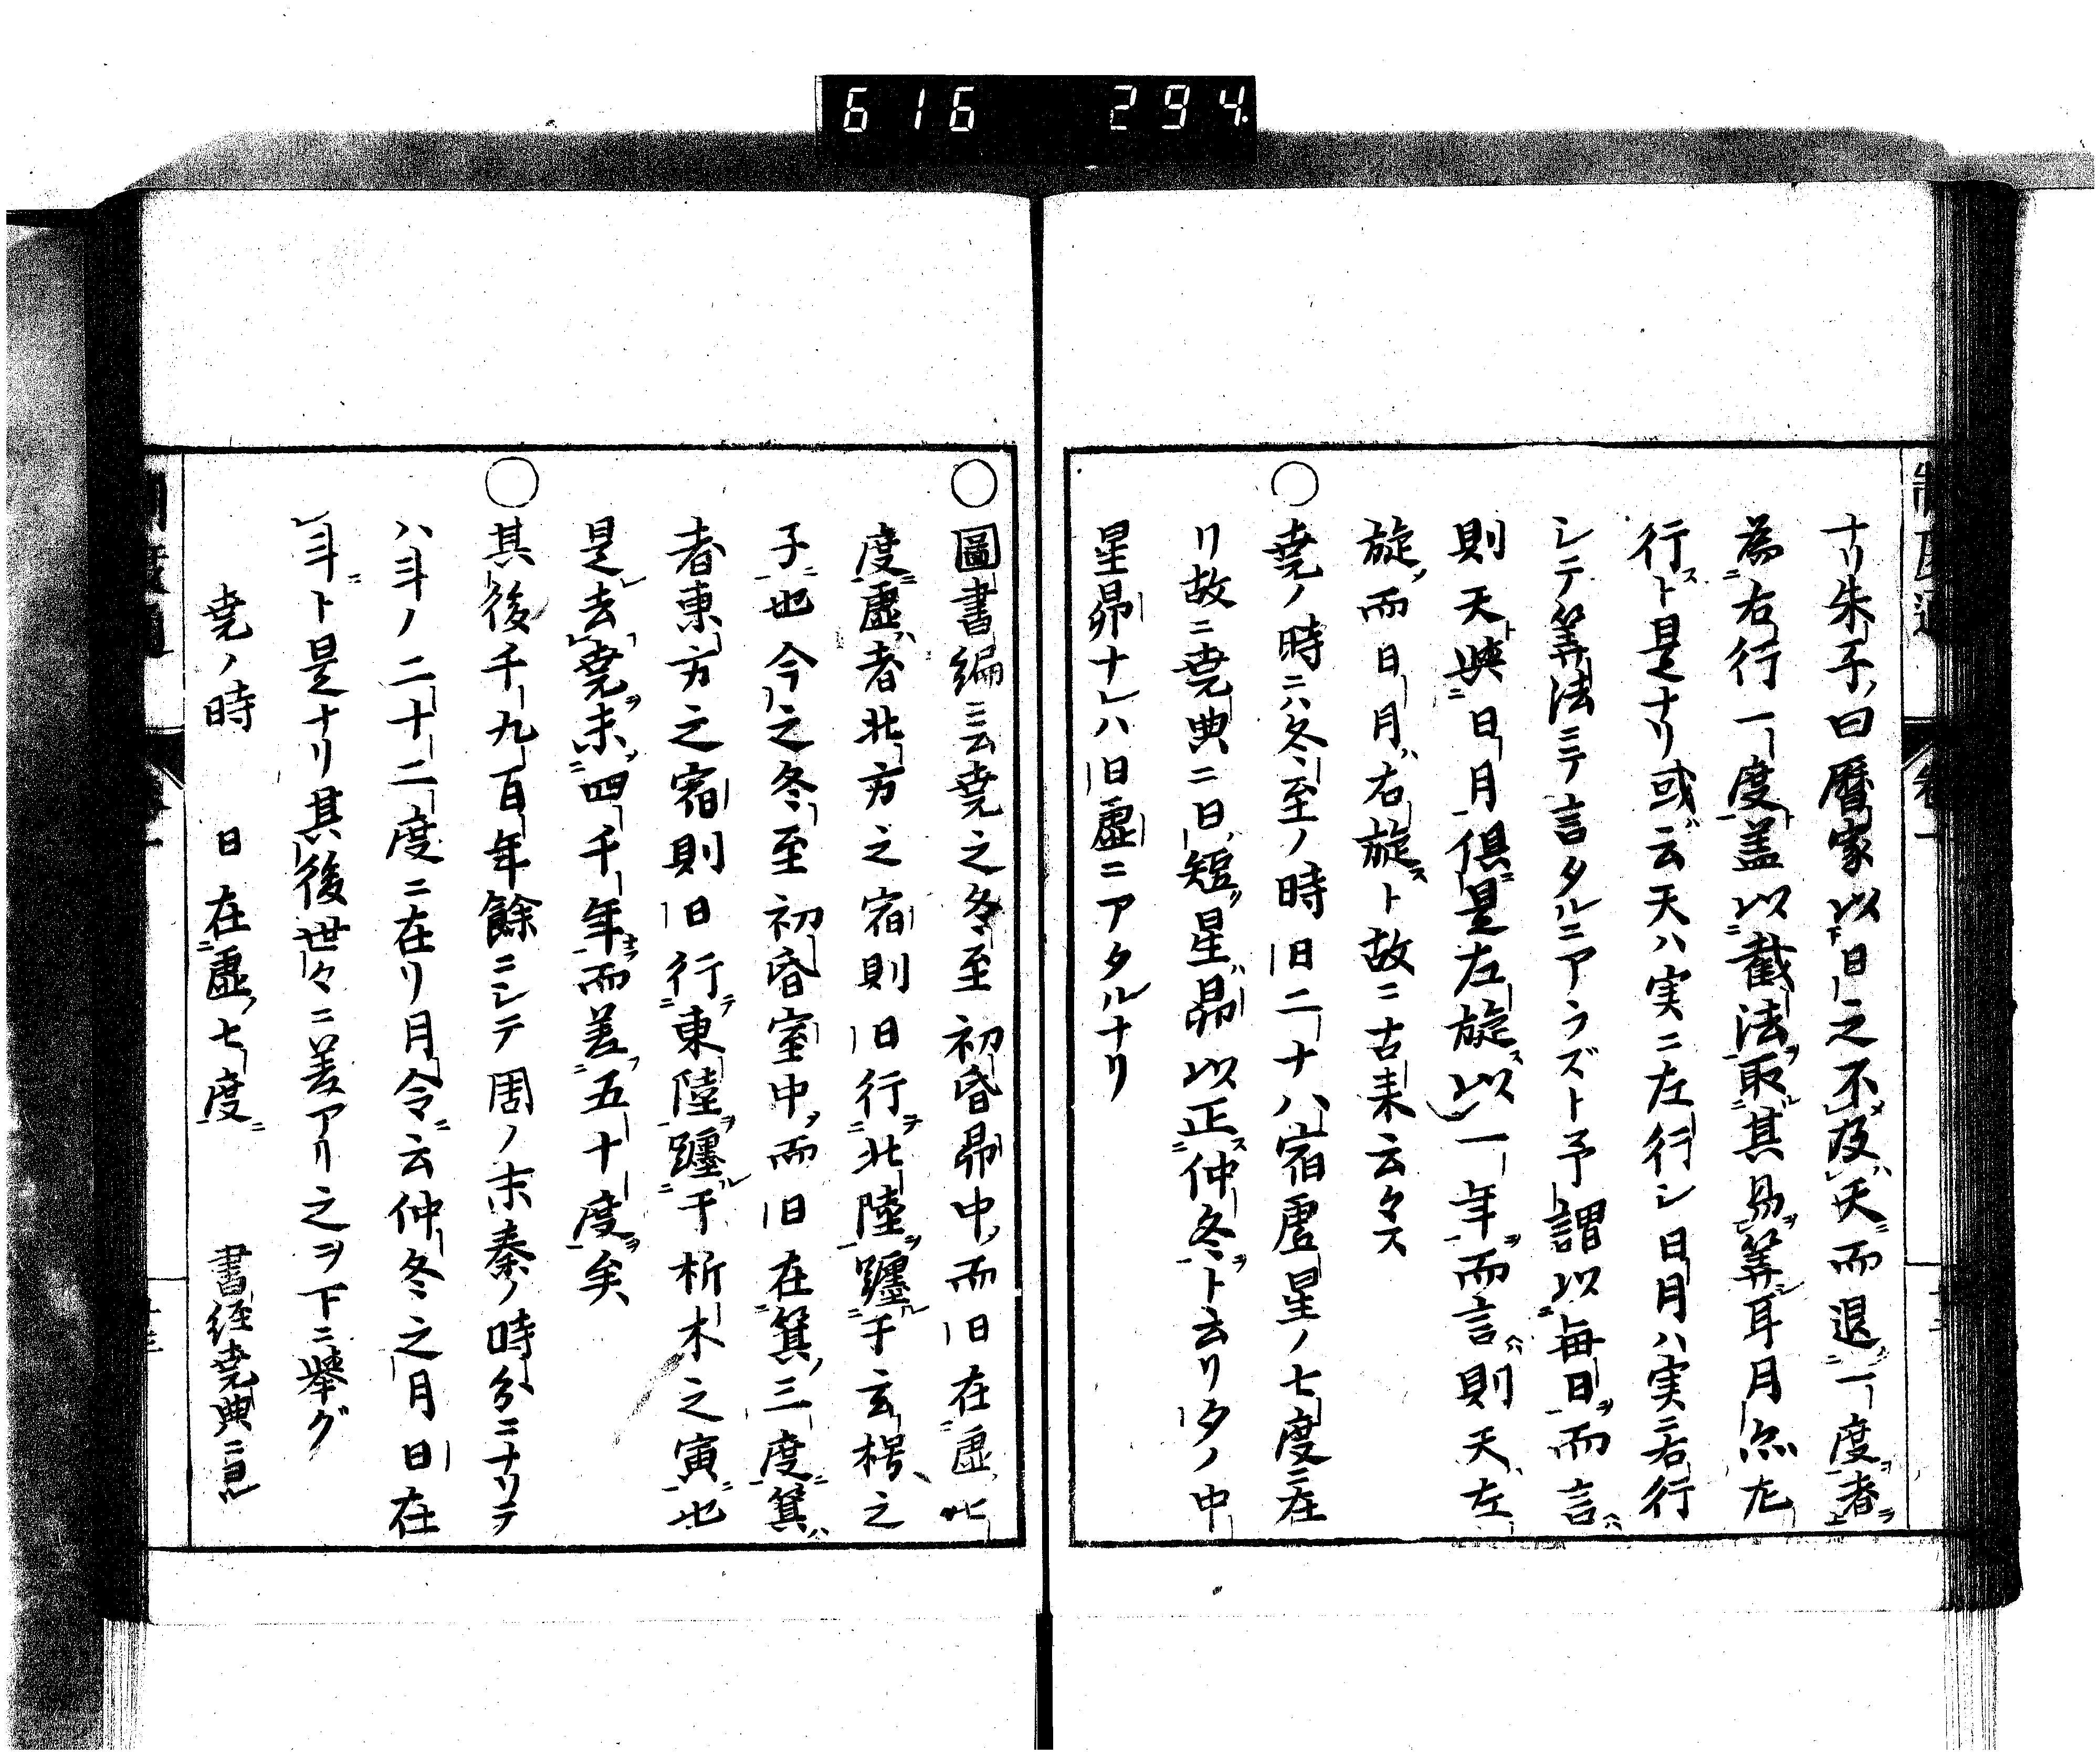 616 294
ナリ朱子曰曆家以日之不及天而退一度者
為右行一度蓋以截法取其易筭耳月亦左
行ト是ナリ或云天ハ実ニ左行シ日月ハ実ニ右行
シテ筭法ニテ言タルニアラズト予謂以每日而言
則天與日月俱是左旋以一年而言則天左
旋而日月右旋ト故ニ古来云々ス
〇堯ノ時ニハ冬至ノ時日二十八宿虛星ノ七度ニ在
リ故ニ堯典ニ日短星昴以正仲冬ト云リ夕ノ中
星昴ナレハ日虛ニアタルナリ
〇圖書編ニ云堯之冬至初昏昴中而日在虛七
度虛者北方之宿則日行北陸躔于玄枵之
子也今之冬至初昏室中而日在箕三度箕
者東方之宿則日行東陸躔于析木之寅也
是去堯未四千年而差五十度矣
〇其後千九百年餘ニシテ周ノ末秦ノ時分ニナリテ
ハ斗ノ二十二度ニ在リ月令云仲冬之月日在
斗ト是ナリ其後世々ニ差アリ之ヲ下ニ舉グ
堯ノ時 日在虛七度 書経堯典ニ見ル